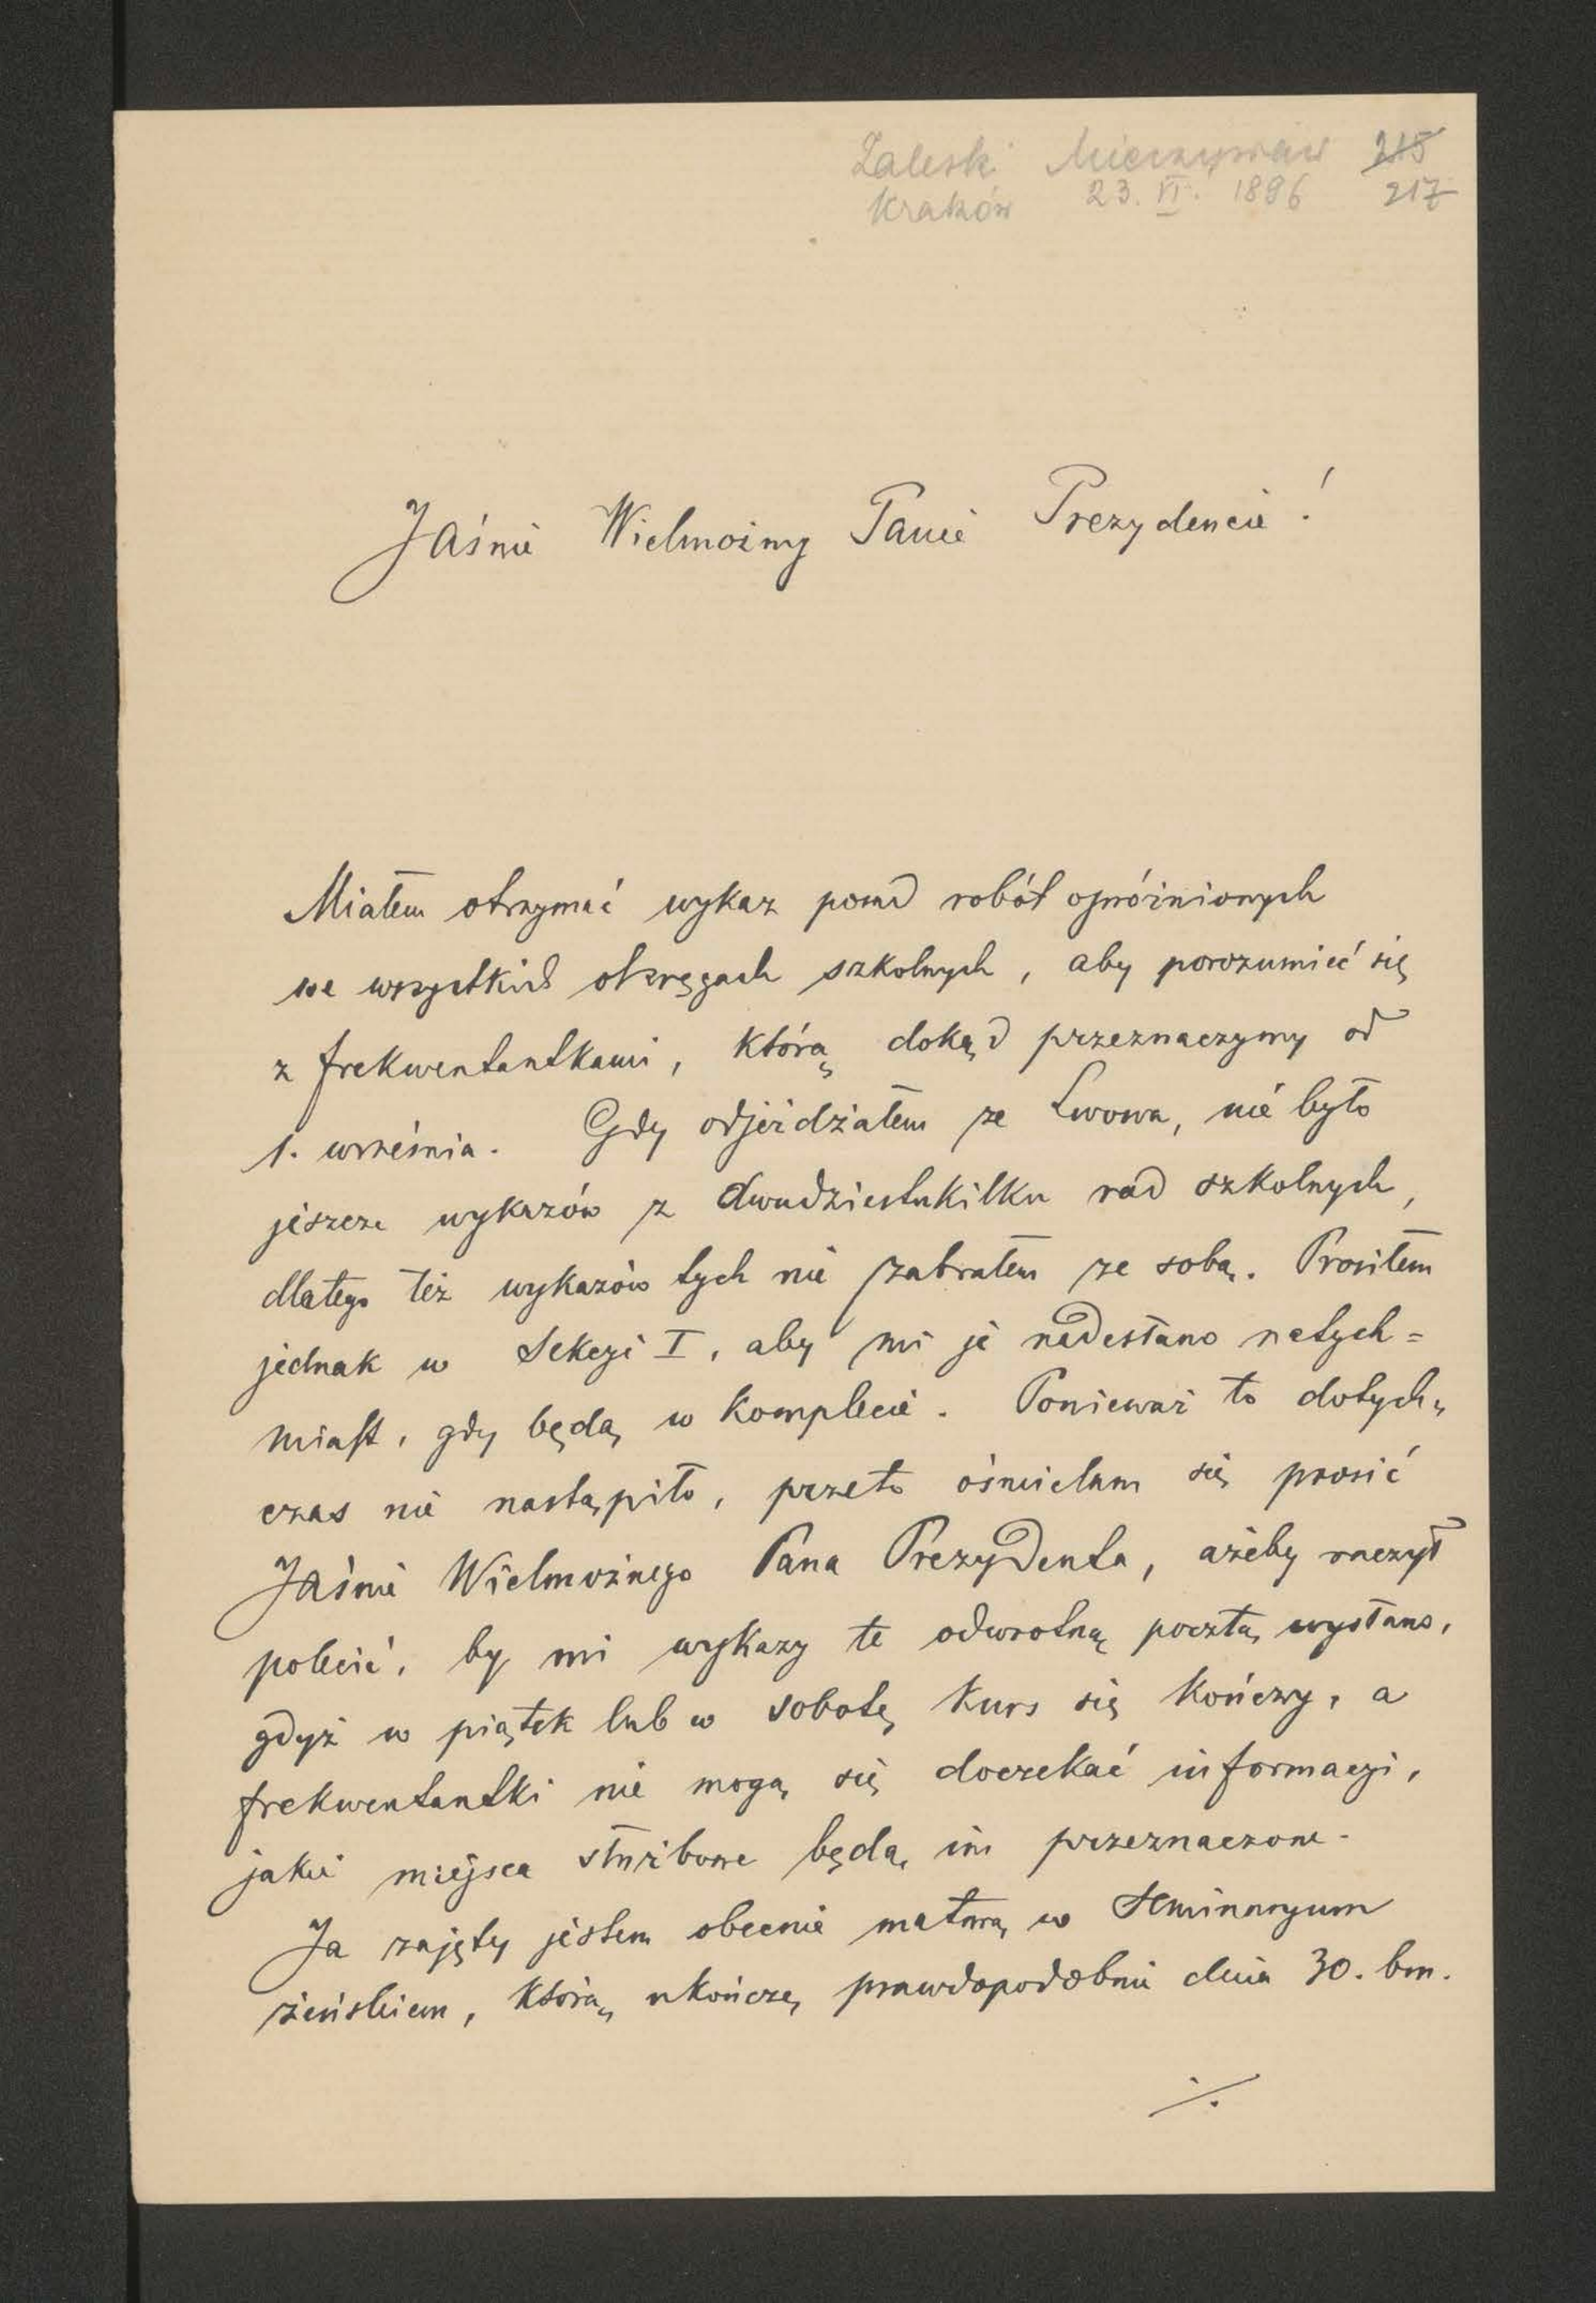 Zaleski Mieczysław 215
Kraków 23. VI. 1896 217
Jaśnie Wielmożny Panie Prezydencie!
Miałem otrzymać wykaz posad robót opróżnionych
we wszystkich okręgach szkolnych, aby porozumieć się
z frekwentantkami, którą dokąd przeznaczymy od
1. września. Gdy odjeżdżałem ze Lwowa, nie było
jeszcze wykazów z dwudziestukilku rad szkolnych,
dlatego też wykazów tych nie zabrałem ze sobą. Prosiłem
jednak w Sekcyi I, aby mi je nadesłano natych=
miast, gdy będą w komplecie. Ponieważ to dotych„
czas nie nastąpiło, przeto ośmielam się prosić
Jaśnie Wielmożnego Pana Prezydenta, ażeby raczył
polecić, by mi wykazy te odwrotną pocztą wysłano,
gdyż w piątek lub w sobotę kurs się kończy, a
frekwentantki nie mogą się doczekać informacyi,
jakie miejsca służbowe będą im przeznaczone.
Ja zajęty jestem obecnie maturą w Seminaryum
żeńskiem, którą ukończę prawdopodobnie dnia 30. bm.
./.